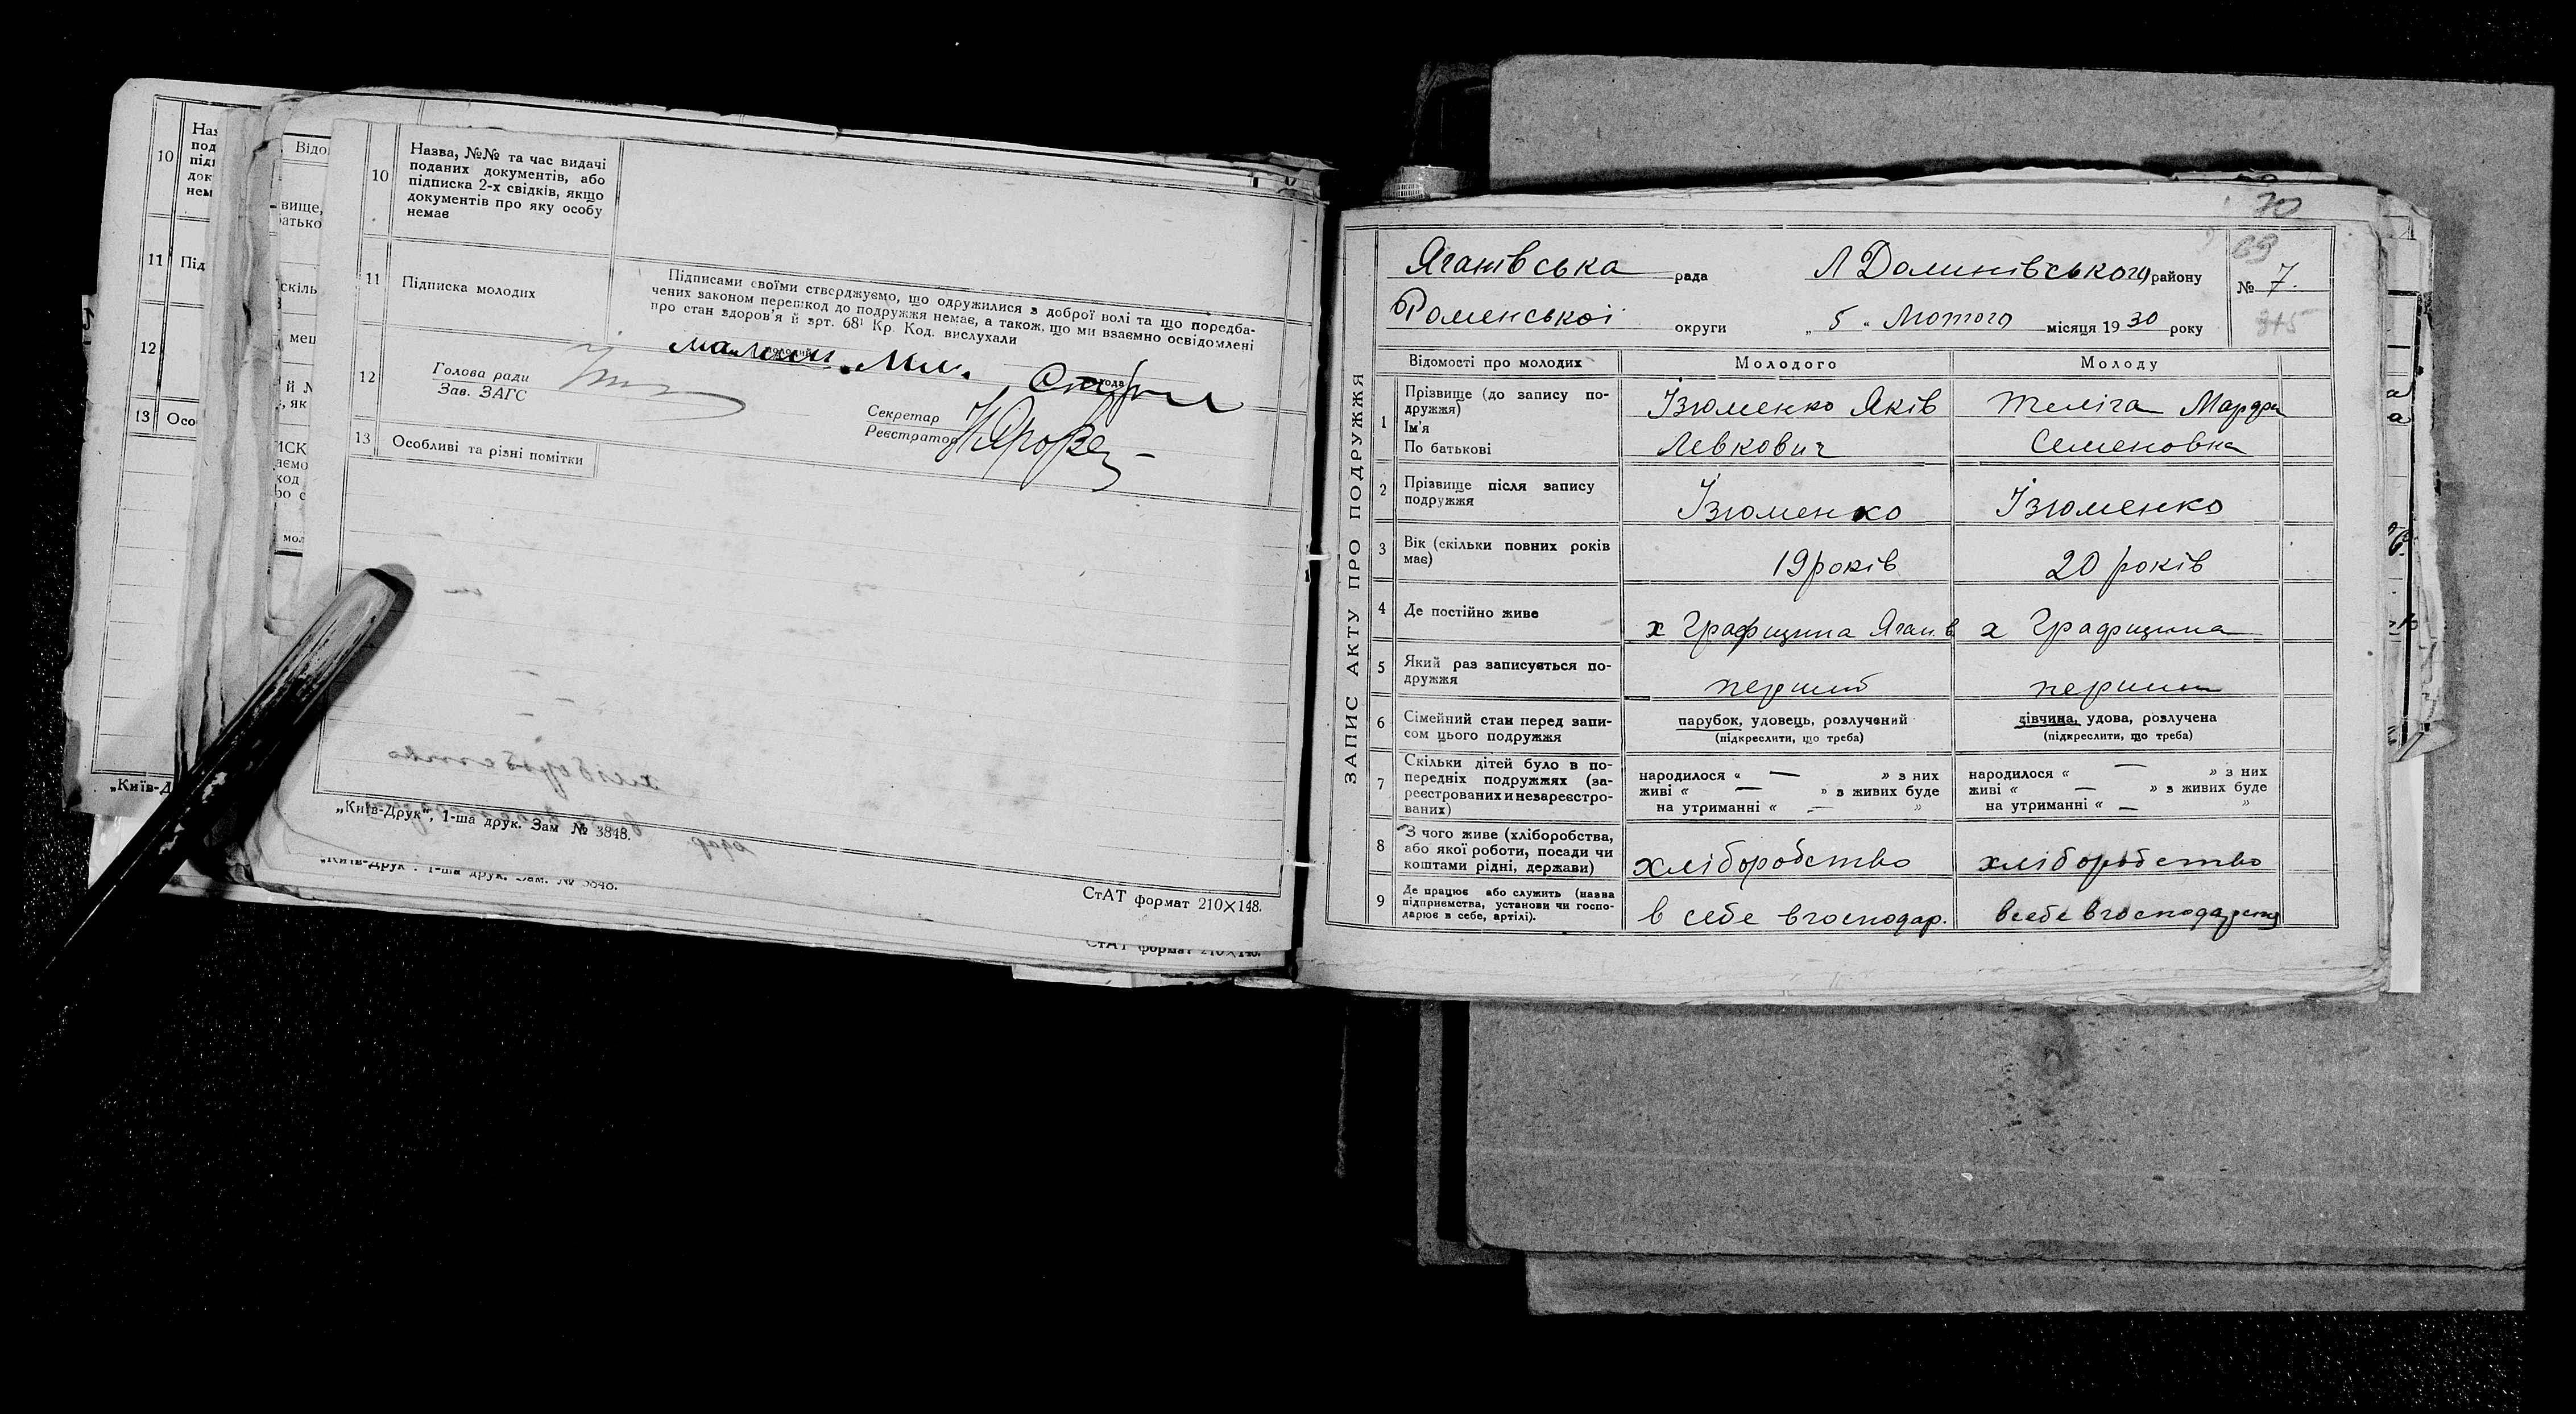 10
Назва, №№ та час видачі
поданих документів, або
підписка 2-х свідків, якщо
документів про яку особу
немає
11
Підписка молодих
Підписами своїми стверджуємо, що одружилися з доброї волі та що передба-
чених законом перешкод до подружжя немає, а також, що ми взаємно освідомлені
про стан здоров'я й арт. 68¹ Кр. Код. вислухали
12
Голова ради
Зав. ЗАГС
Секретар
Реєстратор
13
Особливі та різні помітки
„Київ-Друк", 1-ша друк. Зам № 3848.
СтАТ формат 210×148.
10
11 Під
12
13 Осо
„Київ-Д
70
69
ЗАПИС АКТУ ПРО ПОДРУЖЖЯ
Яганівська рада Л Долинівського району
№ 7.
Роменської округи „ 5 " Лютого місяця 1930 року
315
Відомості про молодих Молодого Молоду
1
Прізвище (до запису по-
дружжя)
Ім'я
По батькові
Ізюменко Яків
Левкович
Теліга
Семеновна
2
Прізвище після запису
подружжя
Ізюменко
Ізюменко
3
Вік (скільки повних років
має)
19 років
20 років
4
Де постійно живе
х Графщина Яган.в
х Графщина
5
Який раз записується по-
дружжя
перший
перший
6
Сімейний стан перед запи-
сом цього подружжя
парубок, удовець, розлучений
(підкреслити, що треба)
дівчина, удова, розлучена
(підкреслити, що треба)
7
Скільки дітей було в по-
передніх подружжях (за-
реєстрованих и незареєстро-
ваних)
народилося « — » з них
живі « — » з живих буде
на утриманні « — »
народилося « — » з них
живі « — » з живих буде
на утриманні « — »
8
З чого живе (хліборобства,
або якої роботи, посади чи
коштами рідні, держави)
хліборобство
хліборобство
9
Де працює або служить (назва
підприємства, установи чи госпо-
дарює в себе, артілі).
в себе в господар.
в себе в господарстві